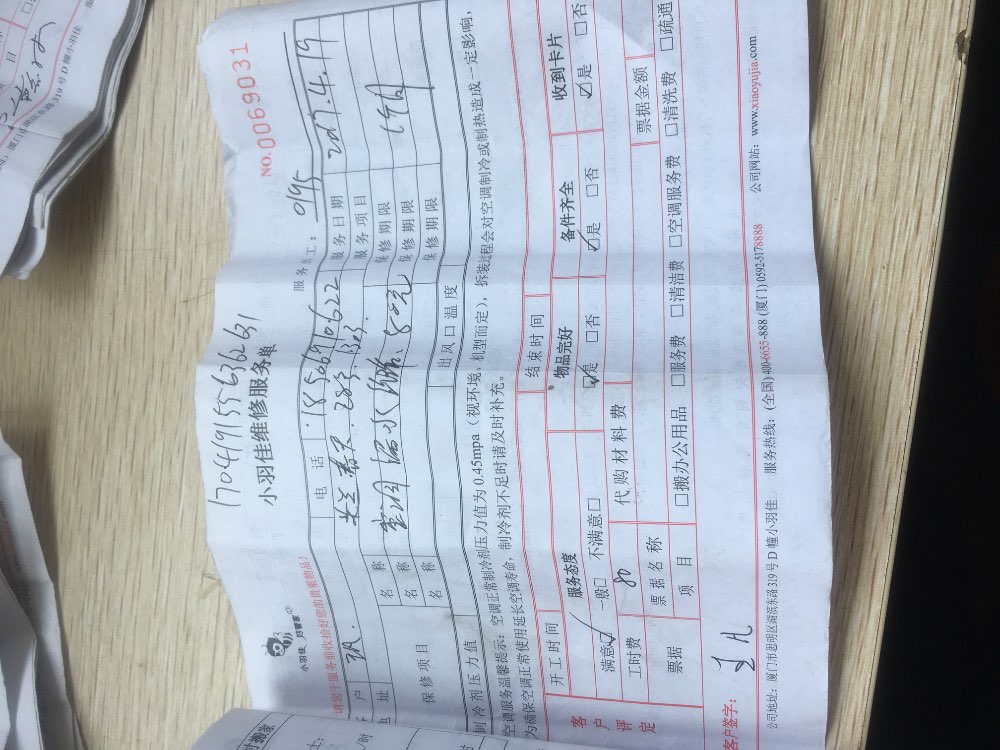 17041915563631
NO.0069031
小羽佳 好管家
小羽佳维修服务单
请您于服务前收拾好您的贵重物品!
服务员工: 0195
户
电话 18506970622
服务日期 2017.4.19
址
服务项目
保修项目
名称 空调漏水维修 80元
保修期限 1个月
名称
保修期限
名称
保修期限
制冷剂压力值
出风口温度
空调服务温馨提示: 空调正常制冷剂压力值为 0.45mpa (视环境、机型而定), 拆装过程会对空调制冷或制热造成一定影响,
为确保空调正常使用延长空调寿命, 制冷剂不足时请及时补充。
开工时间
结束时间
客户评定
服务态度
物品完好
备件齐全
收到卡片
满意☑ 一般□ 不满意□
☑是 □否
☑是 □否
☑是 □否
工时费 80
代购材料费
票据
票据名称
票据金额
项目
□搬办公用品 □服务费 □清洁费 □空调服务费 □清洗费 □疏通
客户签字:
公司地址: 厦门市思明区湖滨东路 319 号 D 幢小羽佳 服务热线: (全国) 400-6655-888 (厦门) 0592-5178888 公司网站: www.xiaoyujia.com
319 号 D 幢小羽佳